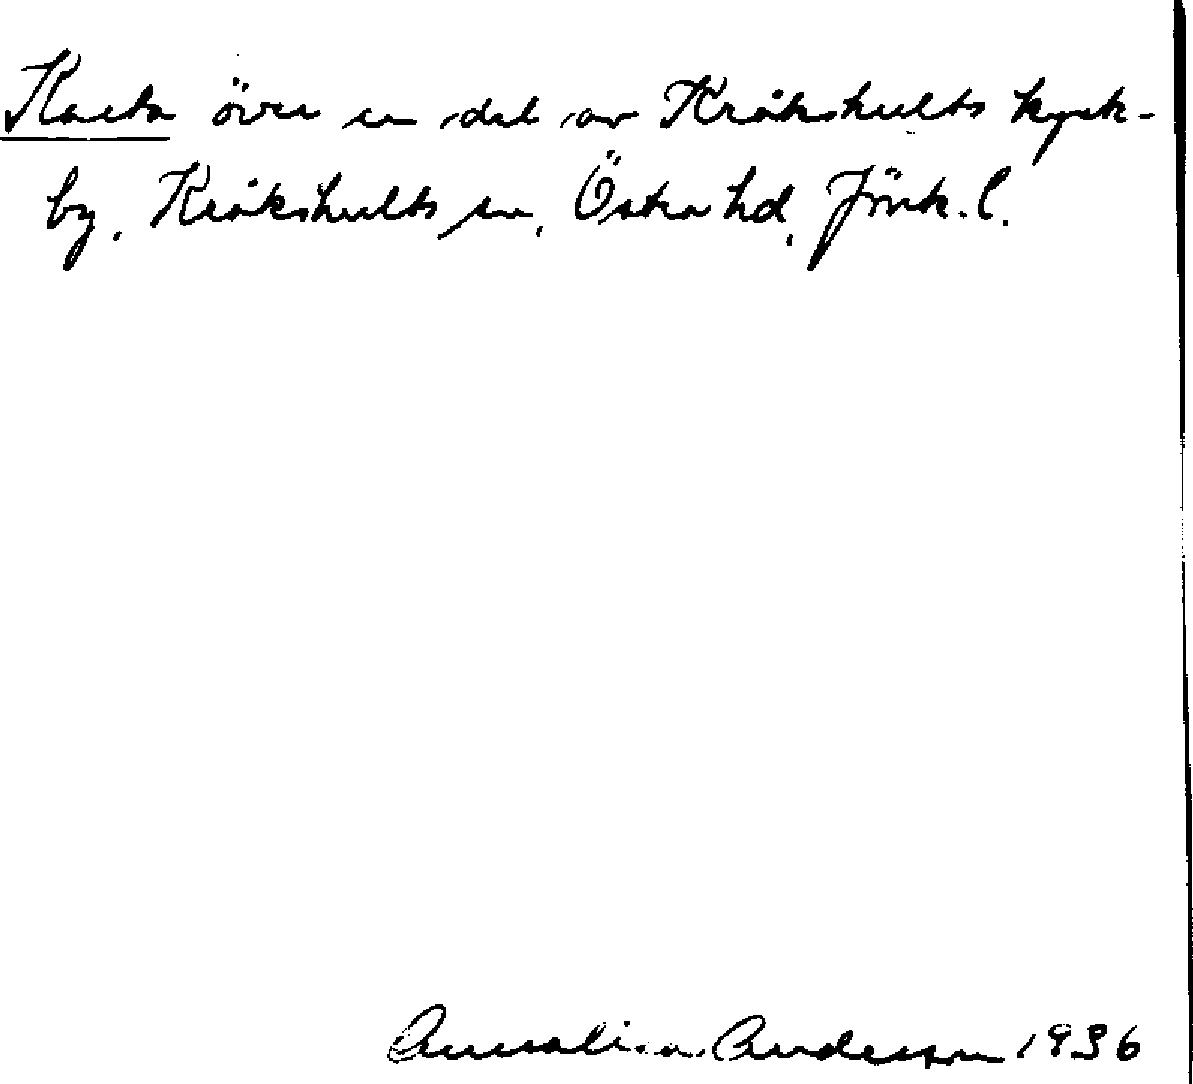 Karta över en del av Kråkshults kyrk-
by, Kråkshults sn, Östra hd, Jönk. l.
Annalisa Anderson 1936